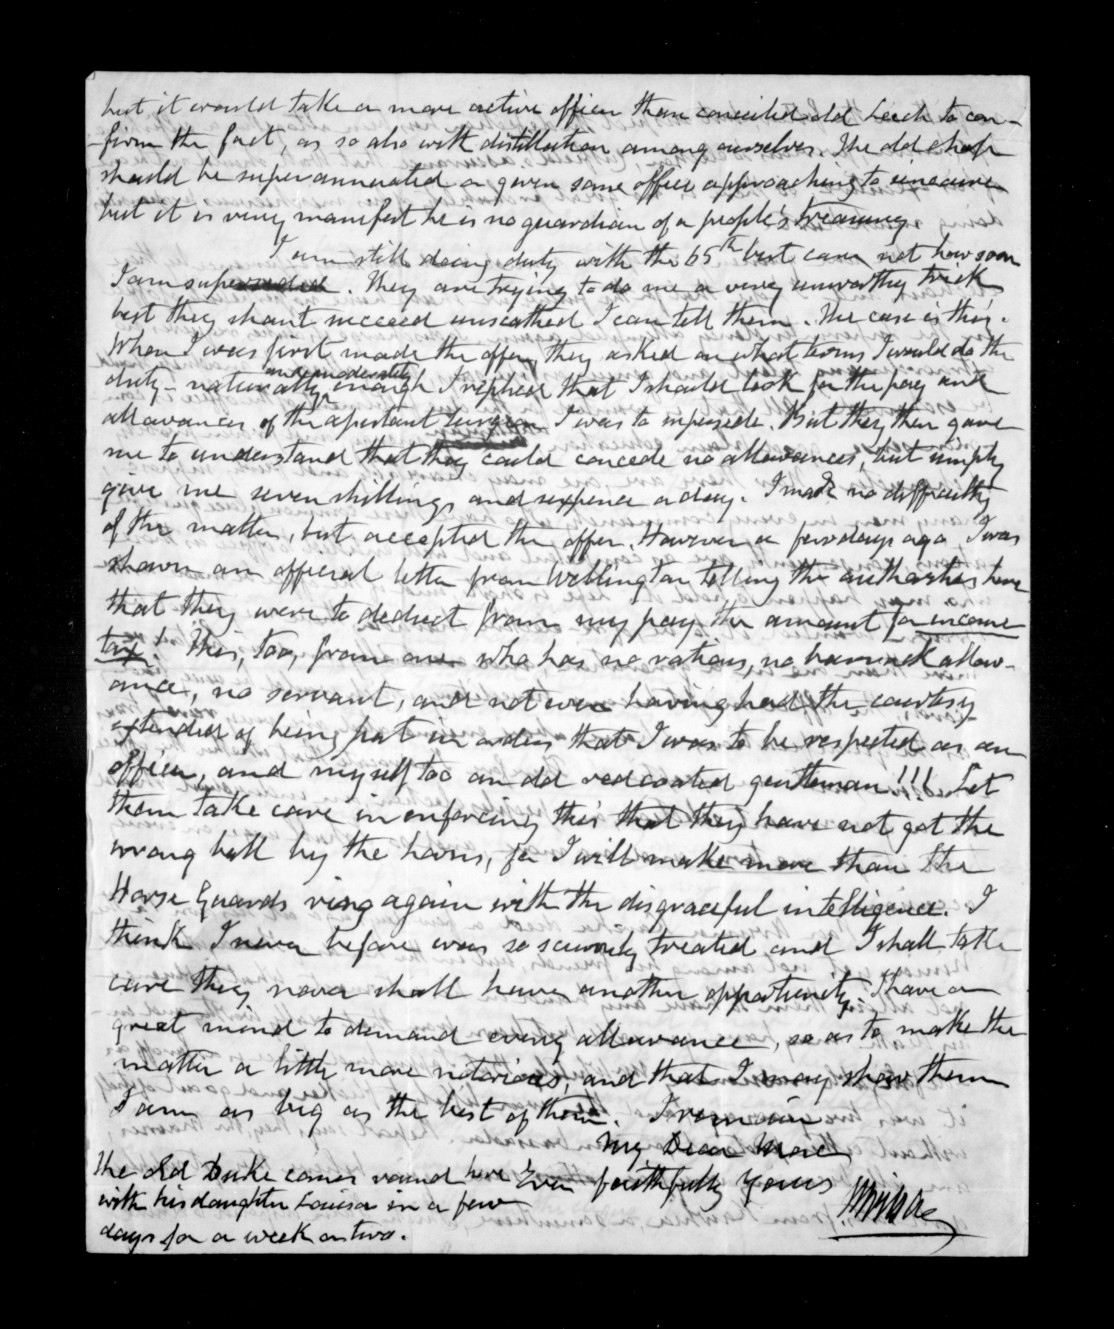 but it would take a more active officer than conceited old Leech to con-
-firm the fact, as so also with distillation among ourselves. The old chap
should be superannuated or given some office approaching to sinecure
but it is very manifest he is no guardian of a people's treasury.
I am still doing duty with the 65th but care not how soon
I am superseded. They are trying to do me a very unworthy trick
but they shant succeed unscathed I can tell them. The case is this.
When I was first made the offer, they asked on what terms I would do the
duty - naturally and moderately enough I replied that I should look for the pay and
allowances of the assistant Surgeon I was to supersede. But they then gave
me to understand that they could concede no allowances, but simply
give me seven shillings and sixpence a day. I made no difficulty
of the matter, but accepted the offer. However a few days ago I was
shown an official letter from Wellington telling the authorities here
that they were to deduct from my pay the amount for income
tax! This, too, from one who has no rations, no barrack allow-
ance, no servant, and not even having had the courtesy
extended of being put in orders that I was to be respected as an
officer, and myself too an old redcoated gentleman!!! Let
them take care in enforcing this that they have not got the
wrong bull by the horns, for I will make more than the
Horse Guards ring again with the disgraceful intelligence. I
think I never before was so scurvily treated and I shall take
care they never shall have another opportunity. I have a
great mind to demand every allowance, so as to make the
matter a little more notorious, and that I may show them
I am as big as the best of them. I remain
My Dear
Ever faithfully Yours
The old Duke comes round here
with his daughter Louisa in a few
days for a week or two.